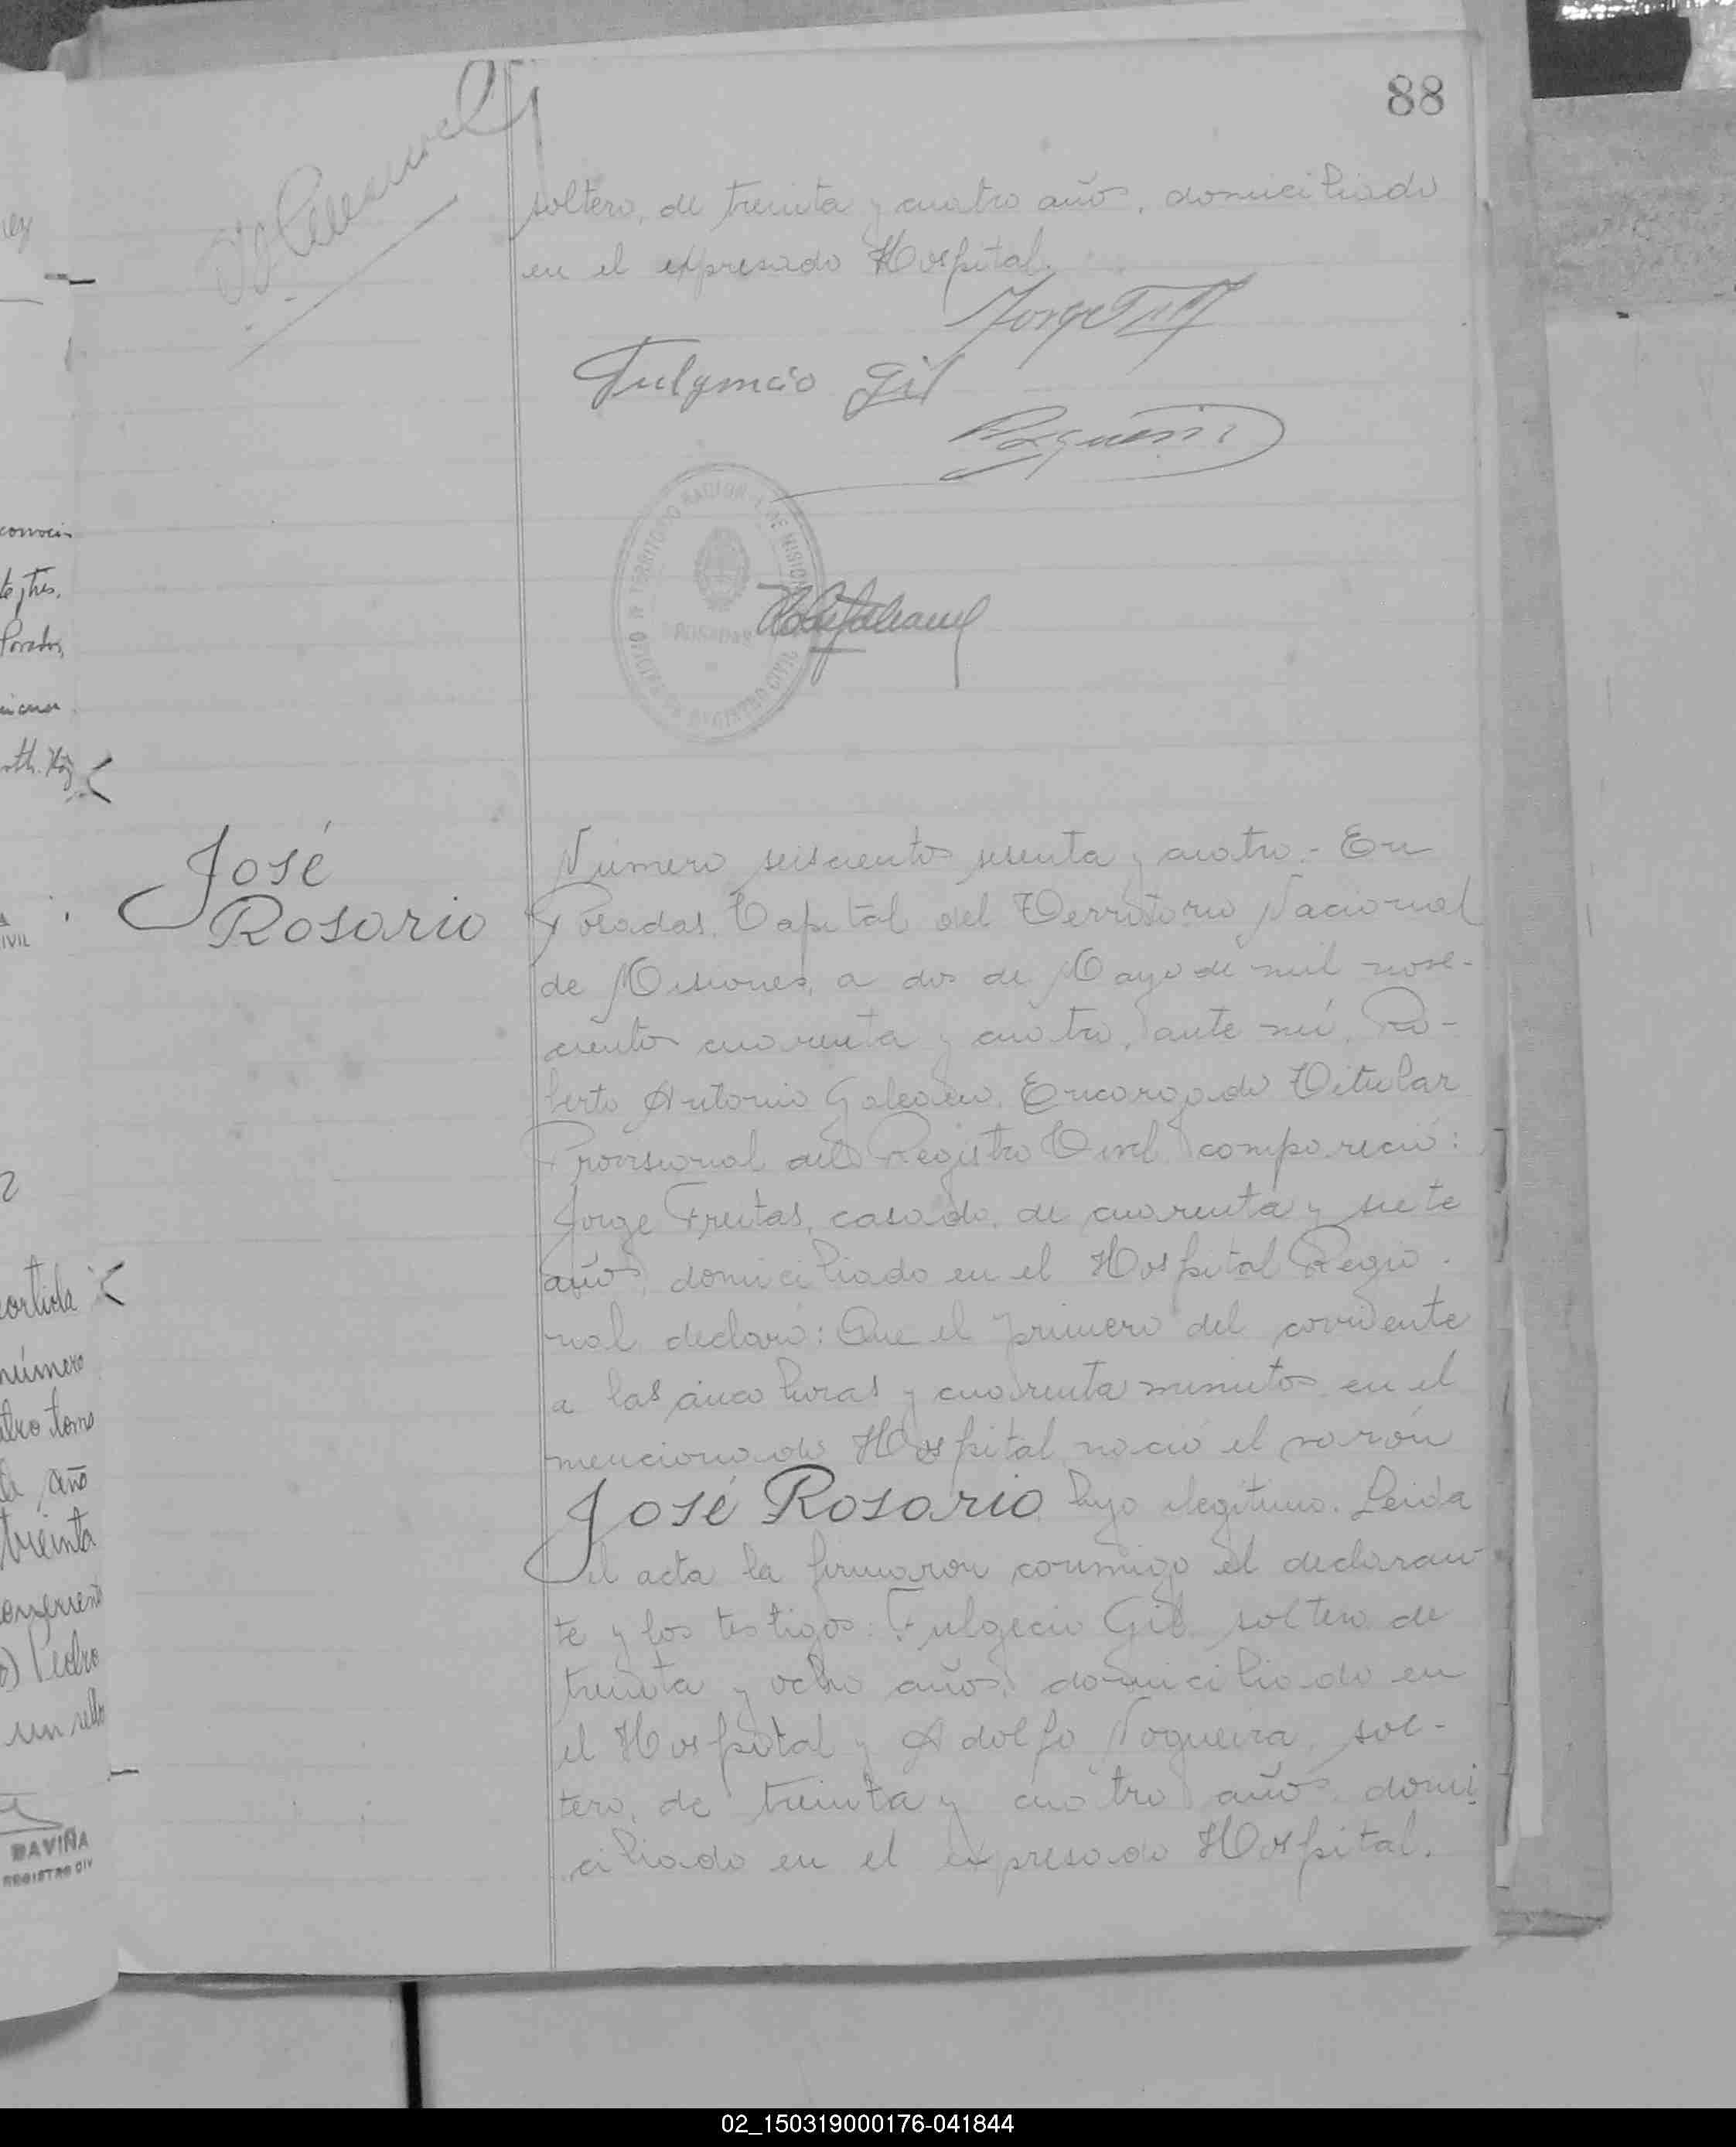 88
soltero, de treinta y cuatro años, domiciliado
en el expresado Hospital.
Jorge
Fulgencio Gil
POSADAS
José
Rosario
Número seiscientos sesenta y cuatro.- En
Posadas, Capital del Territorio Nacional
de Misiones, a dos de Mayo de mil nove-
cientos cuarenta y cuatro, ante mí, Ro-
berto Antonio Galeano, Encargado Titular
Provisional del Registro Civil compareció:
Jorge Freitas, casado, de cuarenta y siete
años, domiciliado en el Hospital Regio-
nal declaró: Que el primero del corriente
a las cinco horas y cuarenta minutos en el
mencionado Hospital nació el varón
José Rosario hijo ilegítimo. Leida
el acta la firmaron conmigo el declaran-
te y los testigos: Fulgecio Gil soltero de
treinta y ocho años, domiciliado en
el Hospital y Adolfo Nogueira, sol-
tero, de treinta y cuatro años domi
ciliado en el expresado Hospital.
conoci-
te y tres.
IVIL
número
tomo
año
treinta
Pedro
un sello
DAVIÑA
REGISTRO CIV
02_150319000176-041844